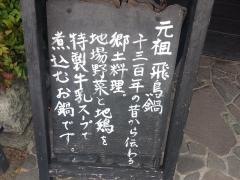 元祖 飛鳥鍋
十三百年の昔から伝わる
郷土料理。
地場野菜と地鶏を
特製牛乳スープで
煮込むお鍋です。